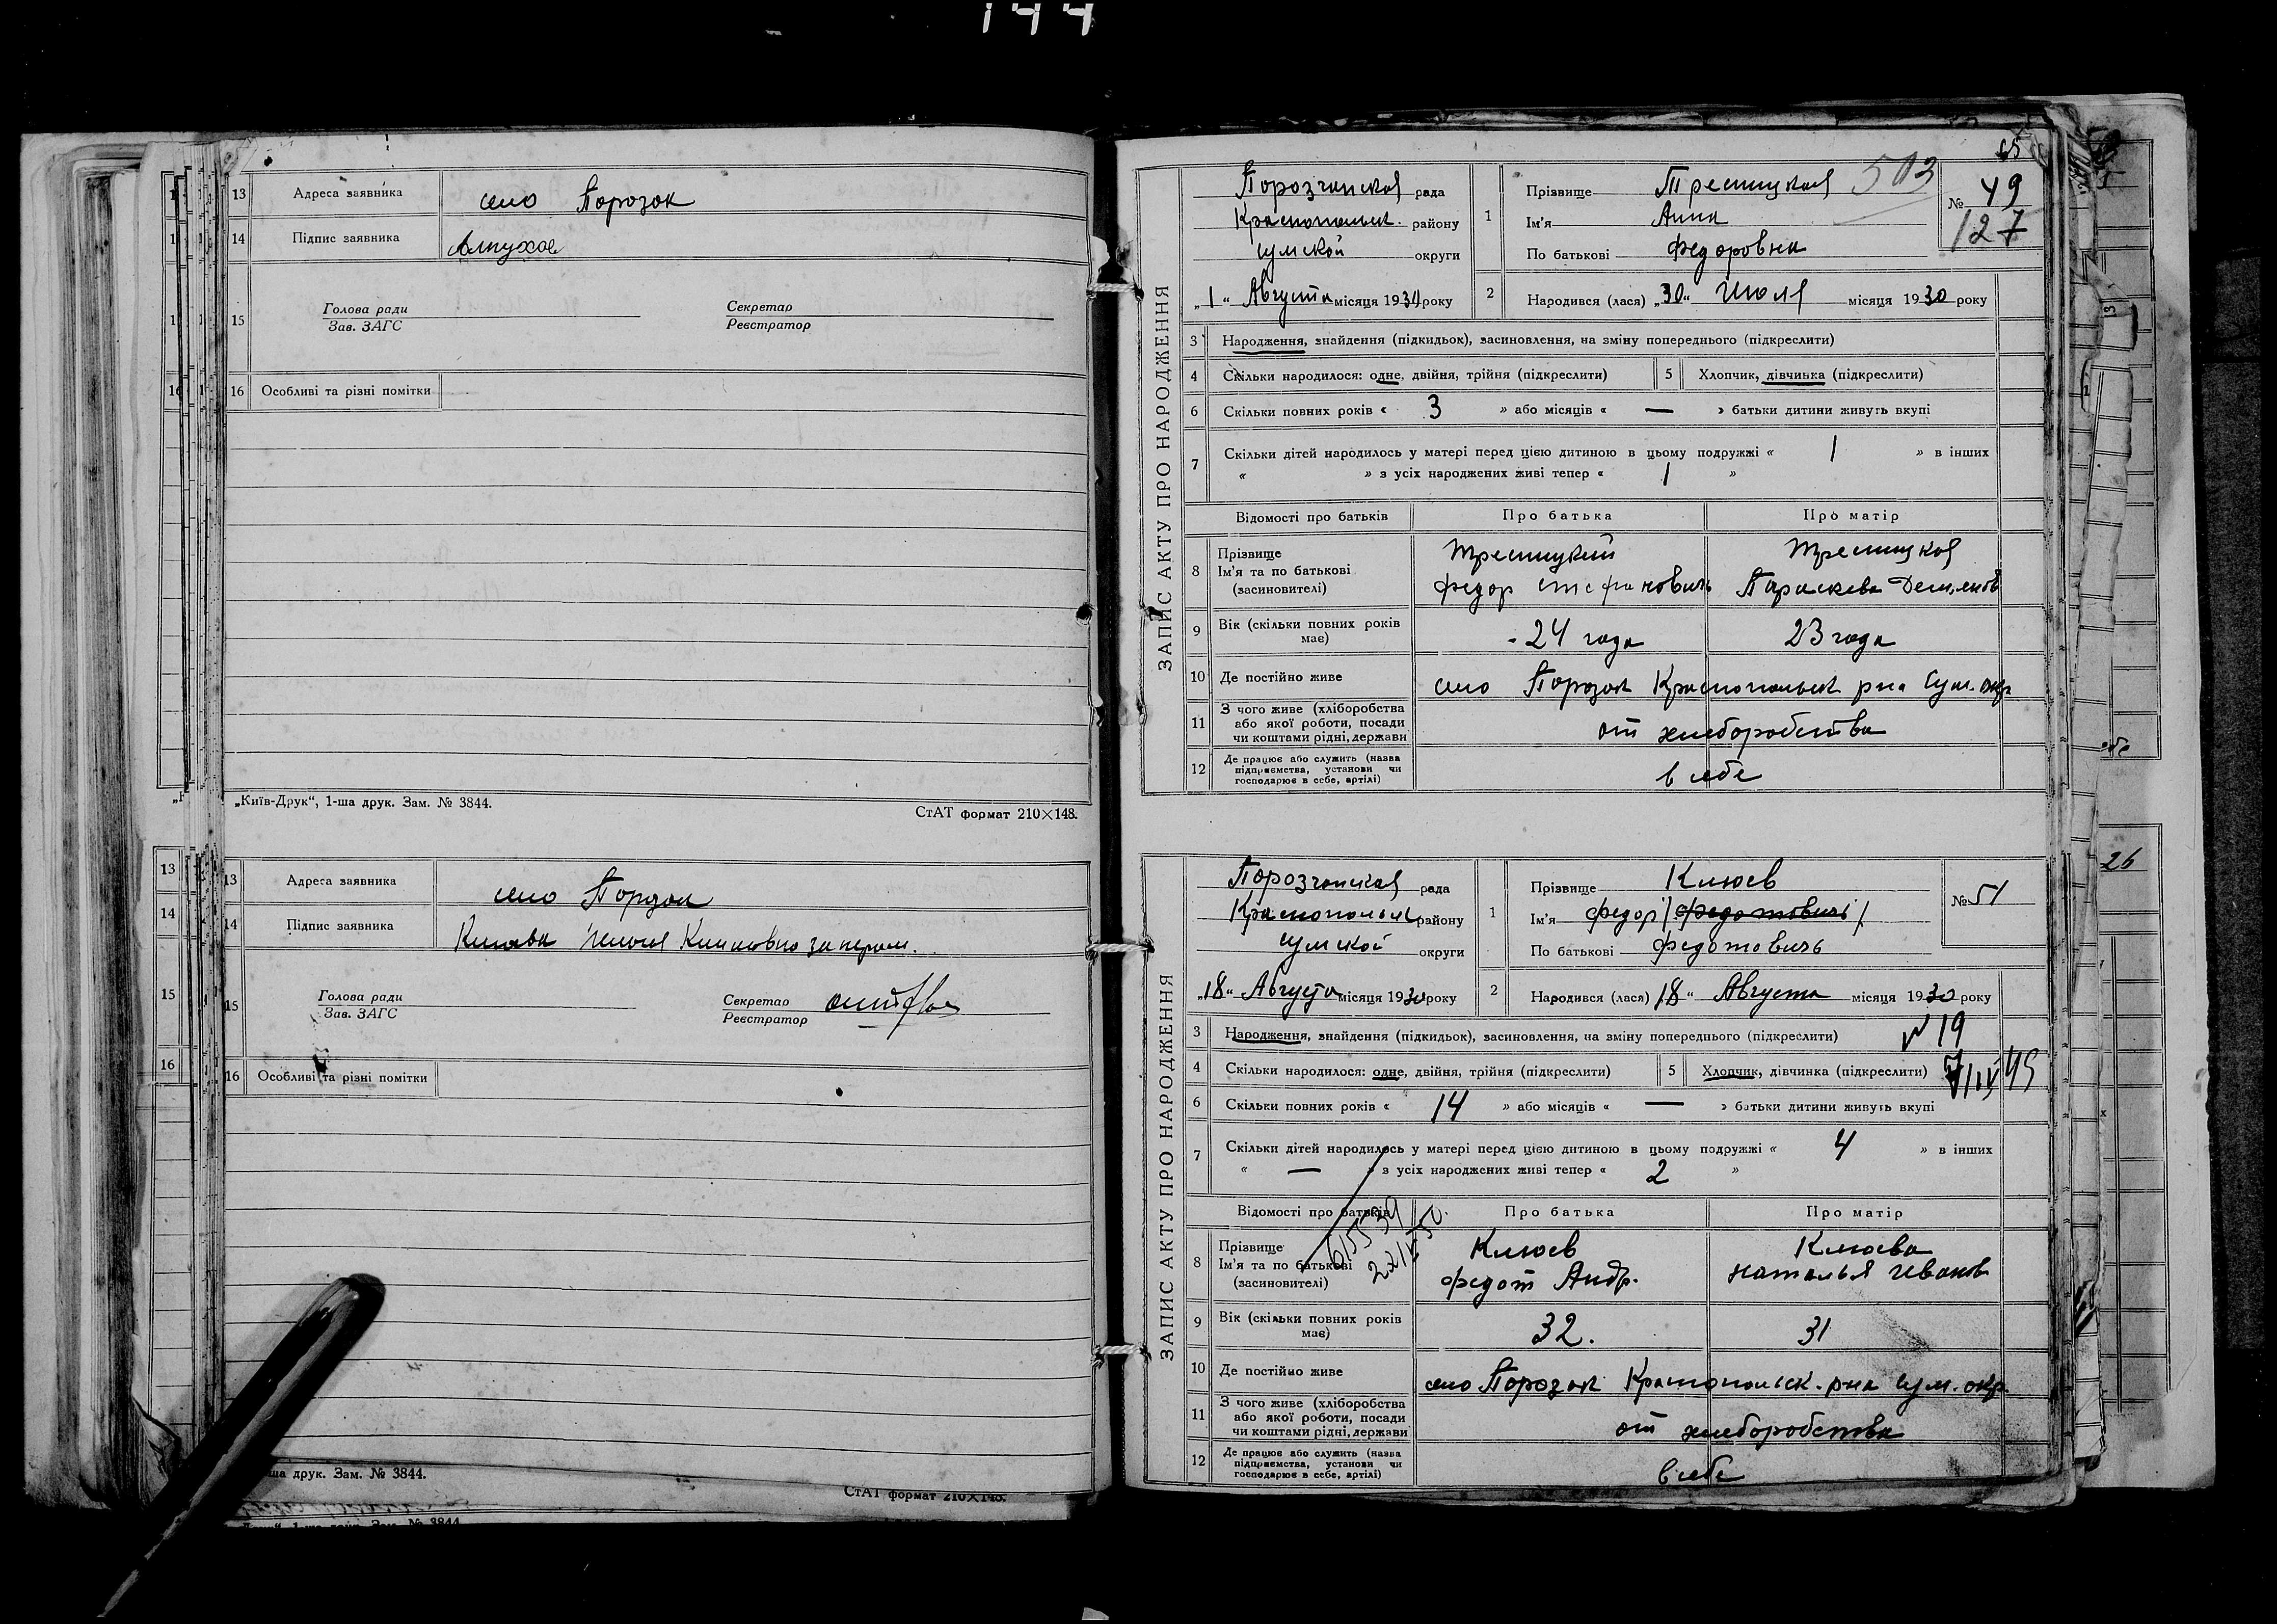 144
13 Адреса заявника село Порозок
14 Підпис заявника Алпухов
15 Голова ради Секретар
Зав. ЗАГС Реєстратор
16 Особливі та різні помітки
„Київ-Друк“, 1-ша друк. Зам. № 3844.
СтАТ формат 210×148.
13 Адреса заявника село Порозок
14 Підпис заявника
15 Голова ради Секретар
Зав. ЗАГС Реєстратор
16 Особливі та різні помітки
ша друк. Зам. № 3844.
СтАТ формат 210×148.
ЗАПИС АКТУ ПРО НАРОДЖЕННЯ
Порозчанская рада
Краснопольск. району
сумской округи
„1“ Августа місяця 1930 року
503
1 Прізвище Тресницкая
Ім'я Анна
По батькові Федоровна
№ 49
127
2 Народився (лася) „30“ Июля місяця 1930 року
3 Народження, знайдення (підкидьок), засиновлення, на зміну попереднього (підкреслити)
4 Скільки народилося: одне, двійня, трійня (підкреслити) 5 Хлопчик, дівчинка (підкреслити)
6 Скільки повних років « 3 » або місяців « — » батьки дитини живуть вкупі
7 Скільки дітей народилось у матері перед цією дитиною в цьому подружжі « 1 » в інших
« » з усіх народжених живі тепер « 1 »
Відомості про батьків Про батька Про матір
8 Прізвище Тресницкий Тресницкая
Ім'я та по батькові Федор Стефановичь Параскева
(засиновителі)
9 Вік (скільки повних років має) 24 года 23 года
10 Де постійно живе село Порозок Краснопольск рна Сум. окр
11 З чого живе (хліборобства
або якої роботи, посади
чи коштами рідні, держави от хлеборобства
12 Де працює або служить (назва
підприємства, установи чи
господарює в себе, артілі) в себе
ЗАПИС АКТУ ПРО НАРОДЖЕННЯ
Порозчанская рада
Краснопольск району
сумской округи
„18“ Августа місяця 1930 року
1 Прізвище Клюев
Ім'я Федор /Федотовичь/
По батькові Федотовичь
№ 51
2 Народився (лася) „18“ Августа місяця 1930 року
3 Народження, знайдення (підкидьок), засиновлення, на зміну попереднього (підкреслити)
№ 19
4 Скільки народилося: одне, двійня, трійня (підкреслити) 5 Хлопчик, дівчинка (підкреслити)
7/IV 45
6 Скільки повних років « 14 » або місяців « — » батьки дитини живуть вкупі
7 Скільки дітей народилось у матері перед цією дитиною в цьому подружжі « 4 » в інших
« — » з усіх народжених живі тепер « 2 »
Відомості про батьків Про батька Про матір
8 Прізвище Клюев Клюева
Ім'я та по батькові Федот Андр. Наталья Иванов
(засиновителі)
9 Вік (скільки повних років має) 32. 31
10 Де постійно живе село Порозок Краснопольск. рна Сум. окр.
11 З чого живе (хліборобства
або якої роботи, посади
чи коштами рідні, держави от хлеборобства
12 Де працює або служить (назва
підприємства, установи чи
господарює в себе, артілі) в себе
26